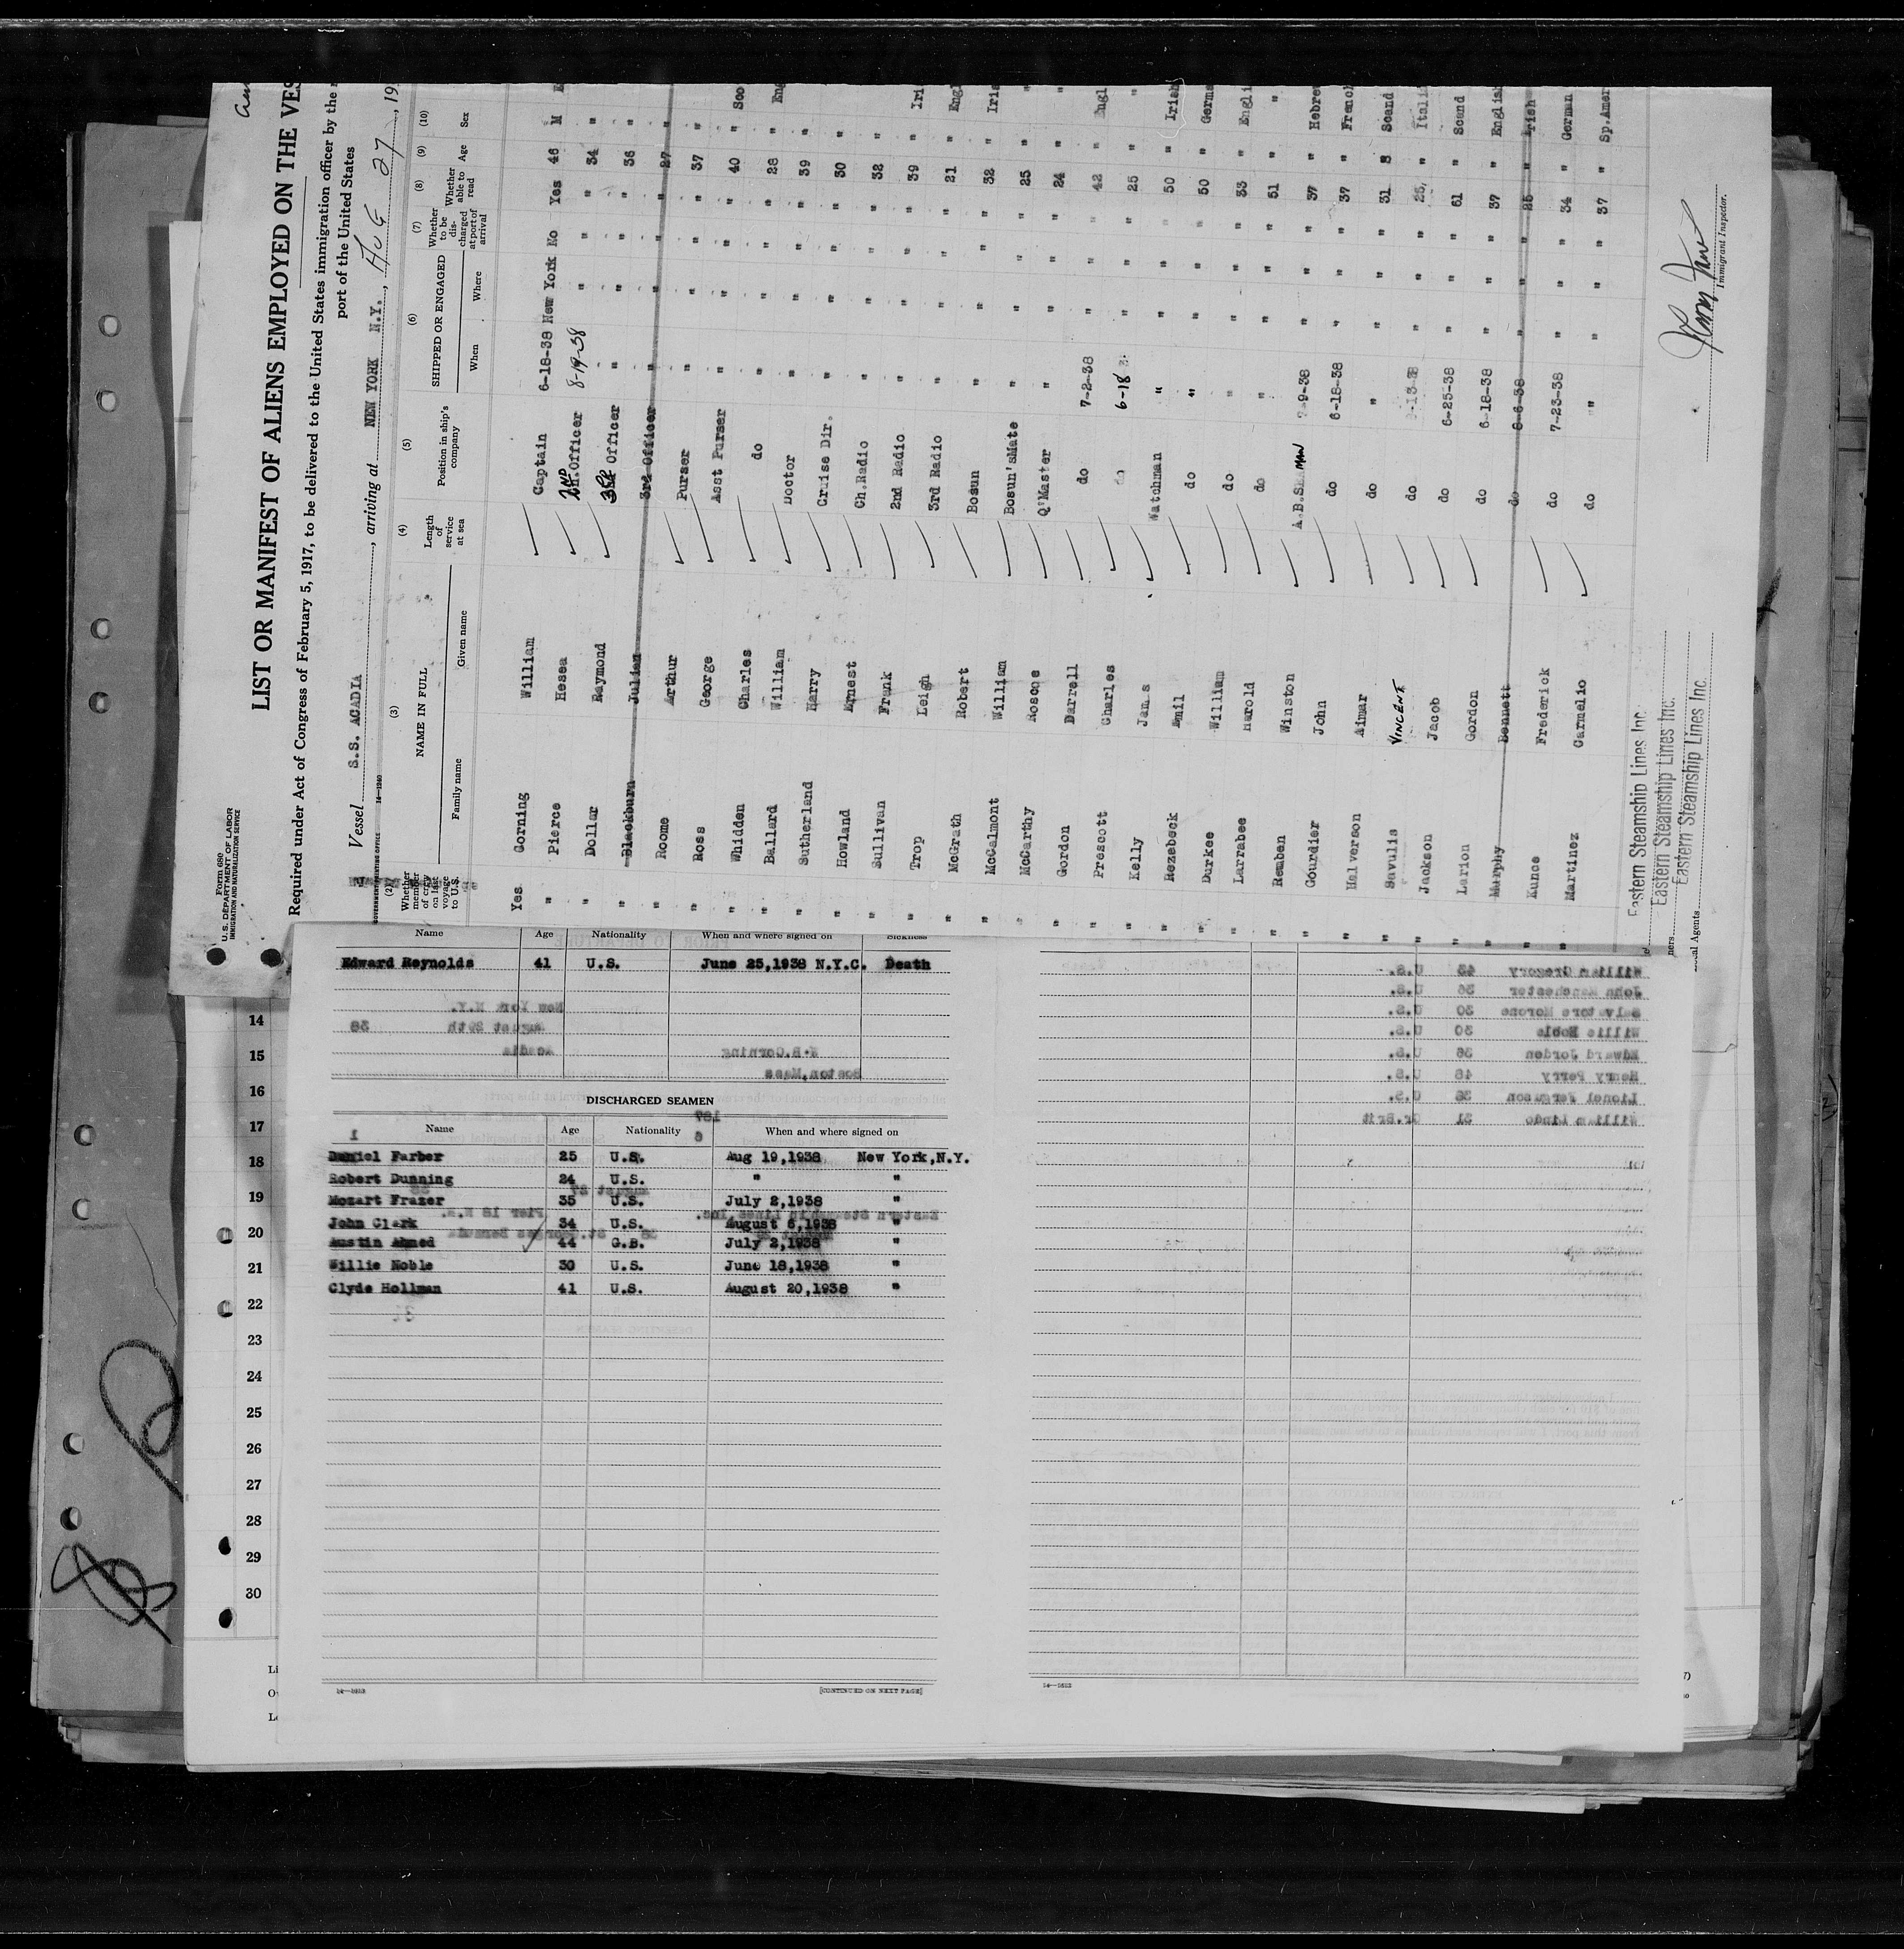 Form 680
U.S. DEPARTMENT OF LABOR
IMMIGRATION AND NATURALIZATION SERVICE
LIST OR MANIFEST OF ALIENS EMPLOYED ON THE VES
Required under Act of Congress of February 5, 1917, to be delivered to the United States immigration officer by the
port of the United States
Vessel S.S. ACADIA, arriving at NEW YORK N.Y., AUG 27, 19
(2) (3) (4) (5) (6) (7) (8) (9) (10)
Whether member of crew on last voyage to U.S. NAME IN FULL Family name Given name Length of service at sea Position in ship's company SHIPPED OR ENGAGED When Where Whether to be discharged at port of arrival Whether able to read Age Sex
Yes Corning William Captain 6-18-38 New York No Yes 46 M E
" Pierce Hesea 2ND Officer 8-19-38 " " " 34 "
" Dollar Raymond 3RD Officer " " " " 36 "
" Blackburn Julian 3rd Officer " " " " 27 "
" Roome Arthur Purser " " " " 37 "
" Ross George Asst Purser " " " " 40 " Sco
" Whidden Charles do " " " " 28 " Eng
" Ballard William Doctor " " " " 39 "
" Sutherland Harry Cruise Dir. " " " " 30 "
" Howland Ernest Ch.Radio " " " " 32 "
" Sullivan Frank 2nd Radio " " " " 39 " Iri
" Trop Leigh 3rd Radio " " " " 21 " Engl
" McGrath Robert Bosun " " " " 32 " Iris
" McCalmont William Bosun'sMate " " " " 25 " "
" McCarthy Roscoe Q'Master " " " " 24 " "
" Gordon Darrell do 7-2-38 " " " 42 " Engl
" Prescott Charles do 6-18 " " " 25 " "
" Kelly James Watchman " " " " 50 " Irish
" Rezebeck Emil do " " " " 50 " Germa
" Durkee William do " " " " 33 " Engli
" Larrabee Harold do " " " " 51 " "
" Remben Winston A.B.SEAMAN 7-9-38 " " " 37 " Hebre
" Gourdier John do 6-18-38 " " " 37 " French
" Halverson Aimar do " " " " 31 " Scand
" Savulis VINCENT do " " " 25 " Itali
" Jackson Jacob do 6-25-38 " " " 61 " Scand
" Larion Gordon do 6-18-38 " " " 37 " English
" Murphy Bennett do 8-6-38 " " " 25 " Irish
" Kunce Frederick do 7-23-38 " " " 34 " German
Martinez Carmelio do " " " " 37 " Sp.Amer
Eastern Steamship Lines Inc.
Eastern Steamship Lines Inc.
Eastern Steamship Lines Inc.
Immigrant Inspector.
Name Age Nationality When and where signed on Sickness
Edward Reynolds 41 U.S. June 25,1938 N.Y.C. Death
New York N.Y.
August 29th 38
Acadia W.B.Corning
Boston,Mass
DISCHARGED SEAMEN
Name Age Nationality When and where signed on
Daniel Farber 25 U.S. Aug 19,1938 New York,N.Y.
Robert Dunning 24 U.S. " "
Mozart Frazer 35 U.S. July 2,1938 "
John Clark 34 U.S. August 6,1938 "
Austin Ahmed 44 G.B. July 2,1938 "
Willie Noble 30 U.S. June 18,1938 "
Clyde Hollman 41 U.S. August 20,1938 "
[CONTINUED ON NEXT PAGE]
William Gregory 43 U.S.
John Manchester 36 U.S.
Salvatore Morone 30 U.S.
Willie Noble 30 U.S.
Edward Jorden 36 U.S.
Henry Perry 46 U.S.
Lionel Ferguson 35 U.S.
William Lindo 31 Gr.Brit
14
15
16
17
18
19
20
21
22
23
24
25
26
27
28
29
30